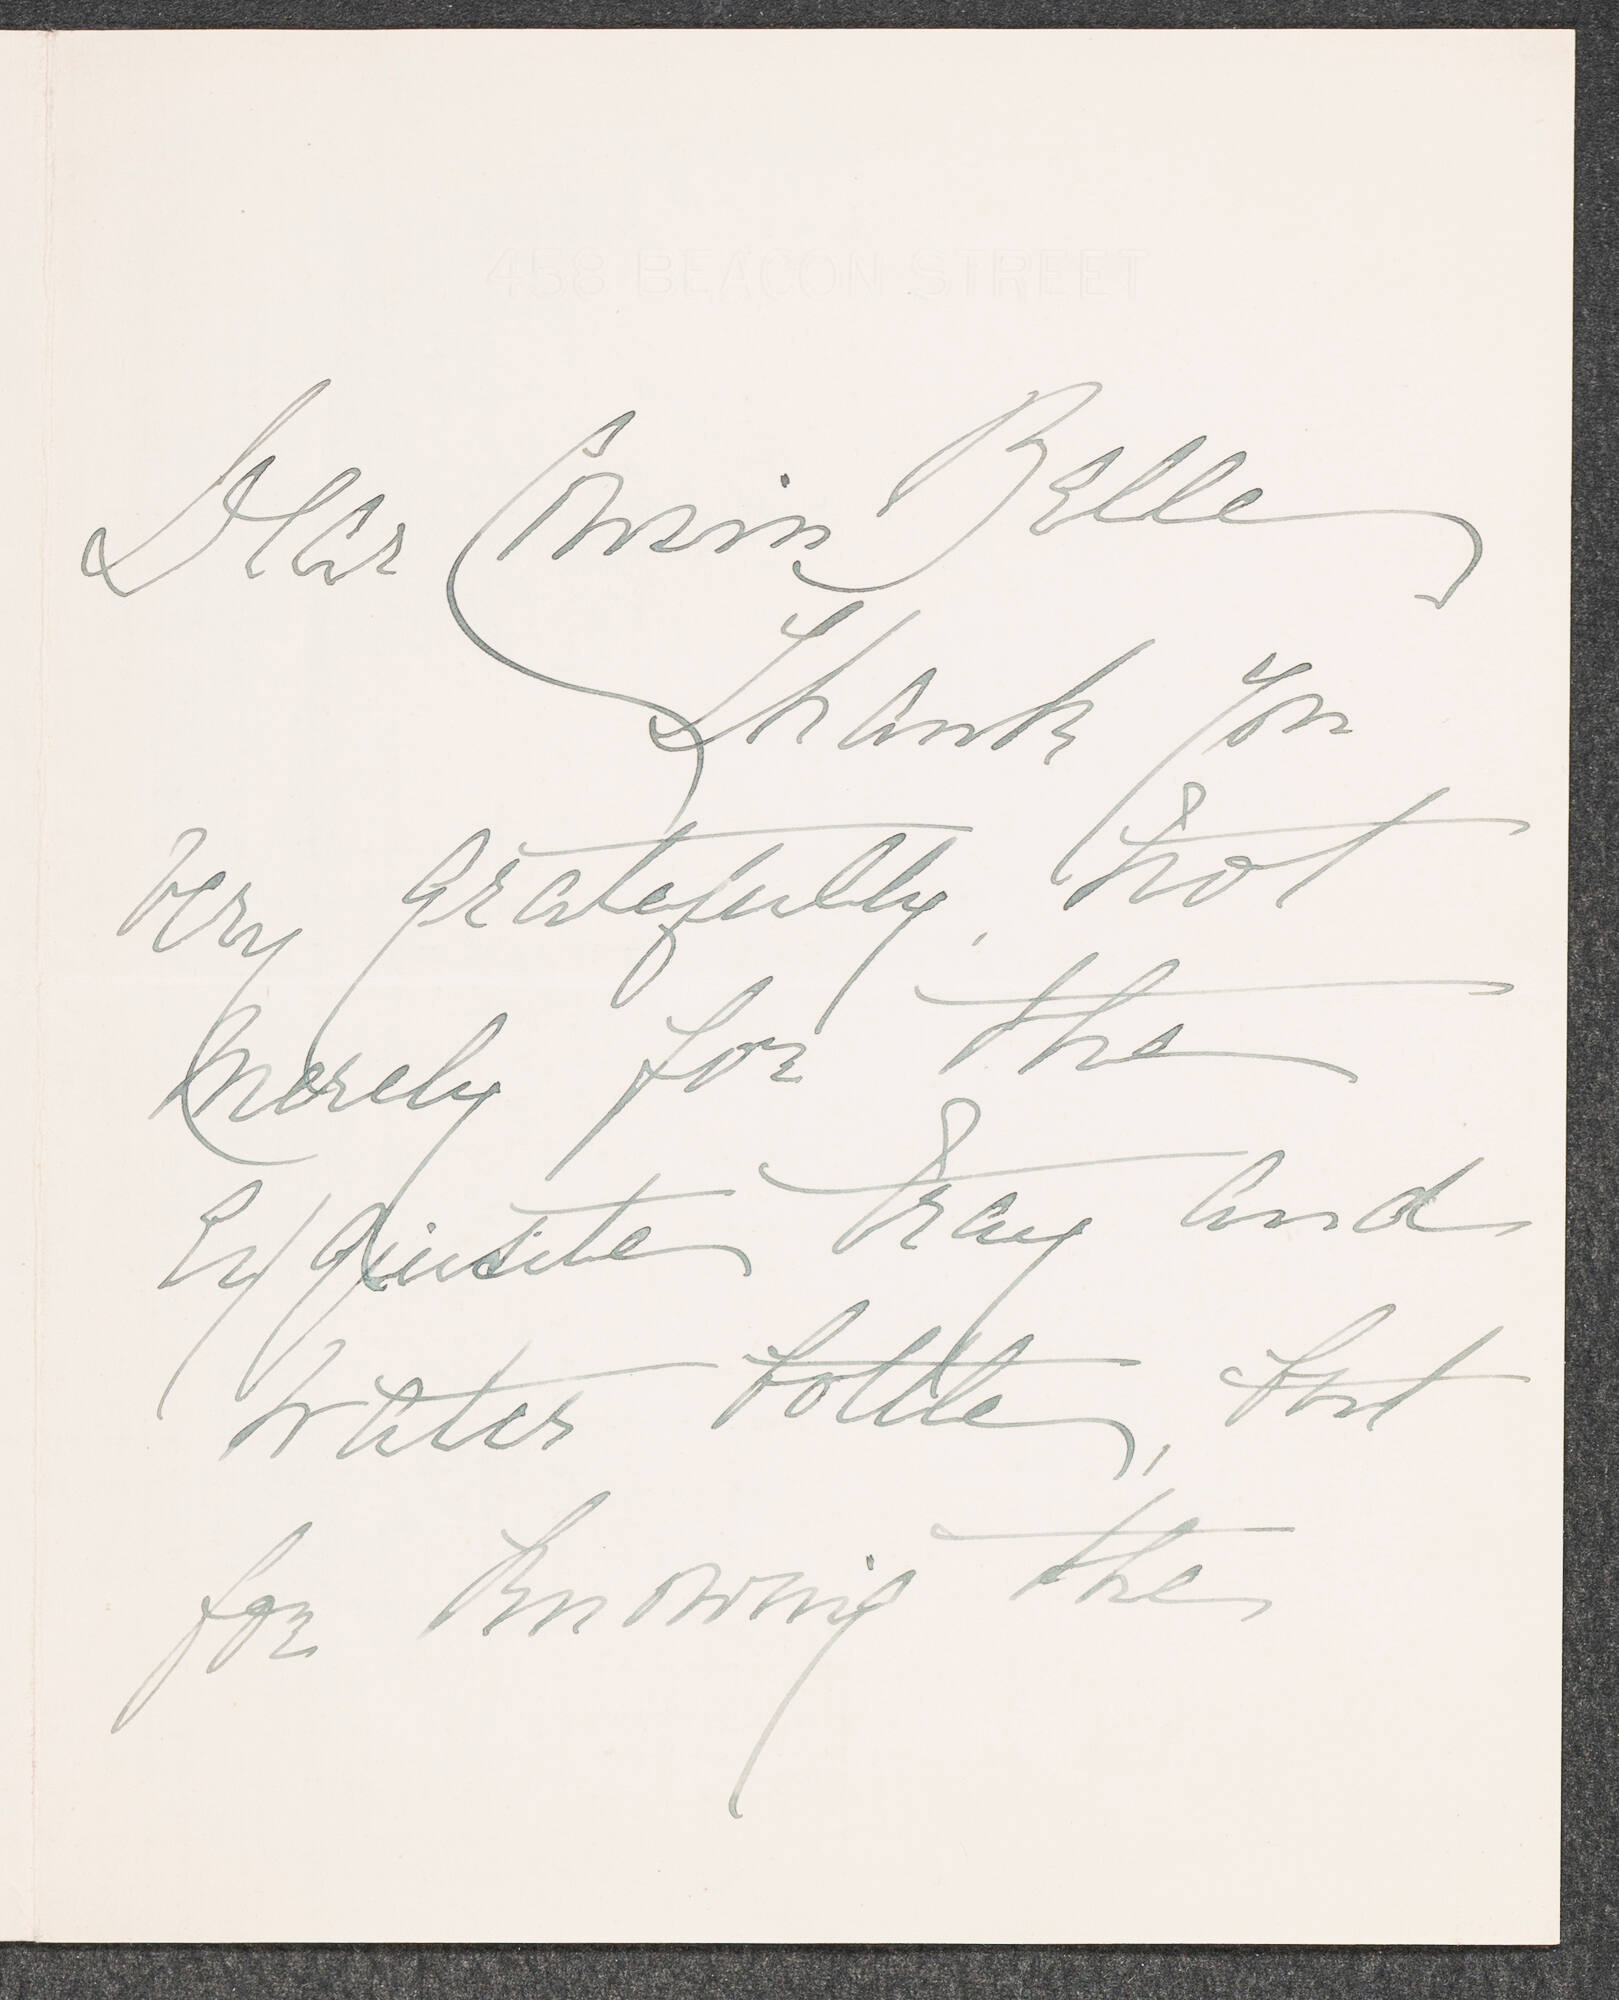 458 BEACON STREET
Dear Cousin Belle
Thank you
very gratefully, not
merely for the
exquisite tray and
water bottle, but
for knowing the